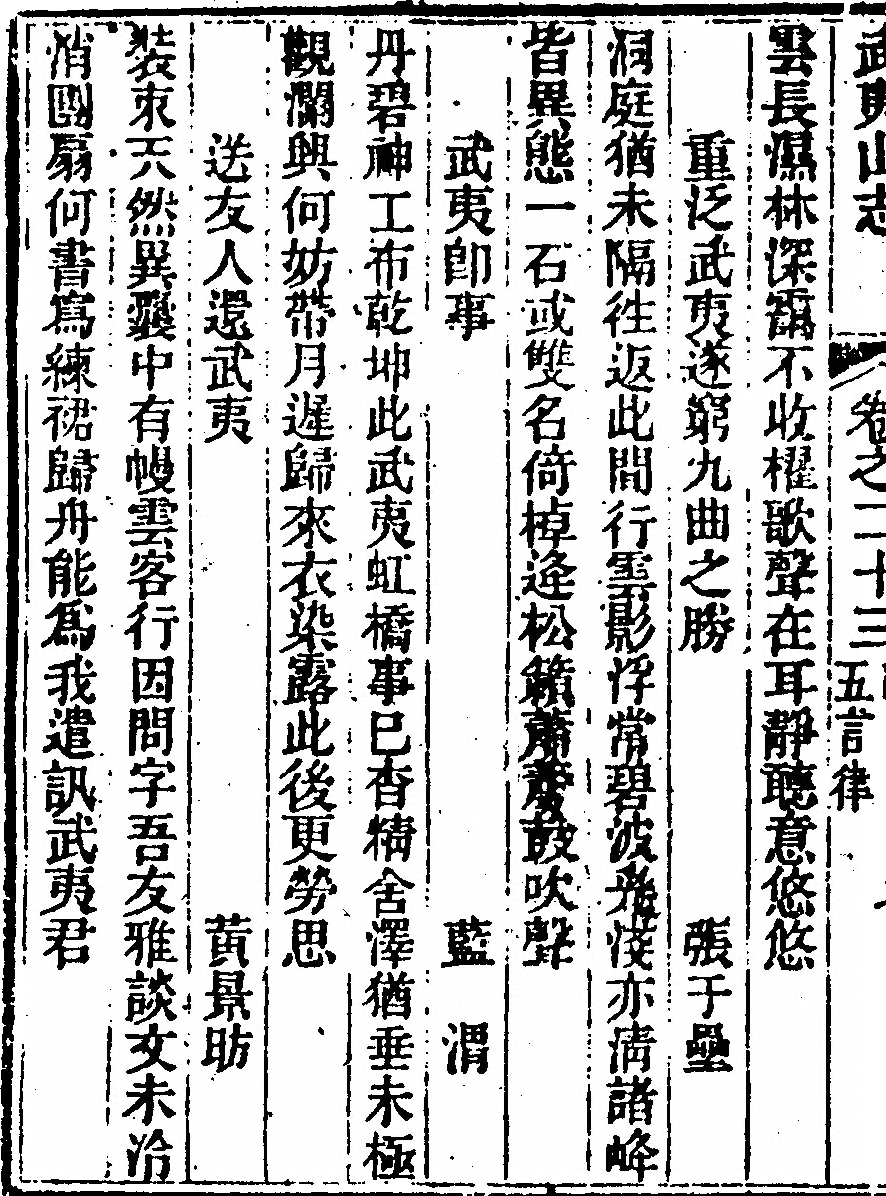 武夷山志 卷之二十三 五言律
雲長濕林深靄不收櫂歌聲在耳靜聽意悠悠
重泛武夷遂窮九曲之勝 張于壘
洞庭猶未隔往返此間行雲影浮常碧波光淺亦清諸峰
皆異態一石或雙名倚棹逢松籟蕭蕭鼓吹聲
武夷即事 藍渭
丹碧神工布乾坤此武夷虹橋事巳杳精舍澤猶垂未極
觀瀾興何妨帶月遲歸來衣染露此後更勞思
送友人還武夷 黄景昉
裝束天然異囊中有幔雲客行因問字吾友雅談文未洽
消團扇何書寫練裙歸舟能爲我遣訊武夷君